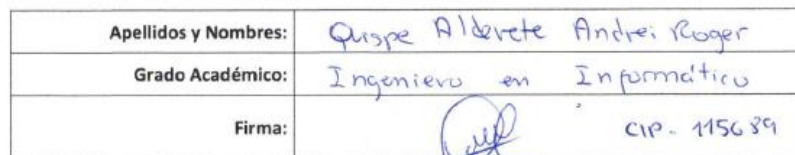 Apellidos y Nombres: Quispe Alderete Andrei Roger
Grado Académico: Ingeniero en Informático
Firma: CIP. 115689